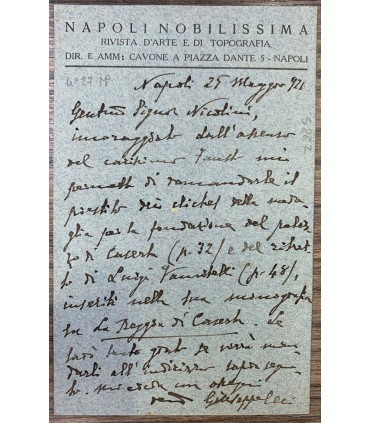 NAPOLI NOBILISSIMA
RIVISTA D'ARTE E DI TOPOGRAFIA
DIR. E AMM: CAVONE A PIAZZA DANTE 5 - NAPOLI
Napoli 25 Maggio 921
Signor Nicolini,
incoraggiato dall'assenso
del carissimo Fausto mi
permetto di domandarle il
prestito dei clichés della meda-
glia per la fondazione del palaz-
zo di Caserta (p. 32) e del ritrat-
to di Luigi Vanvitelli (p. 48),
inseriti nella sua monografia
su La Reggia di Caserta. Le
sarò tanto grato se vorrà man-
darli all'indirizzo soprasegna-
to. mi creda con ossequi
Giuseppe Ceci